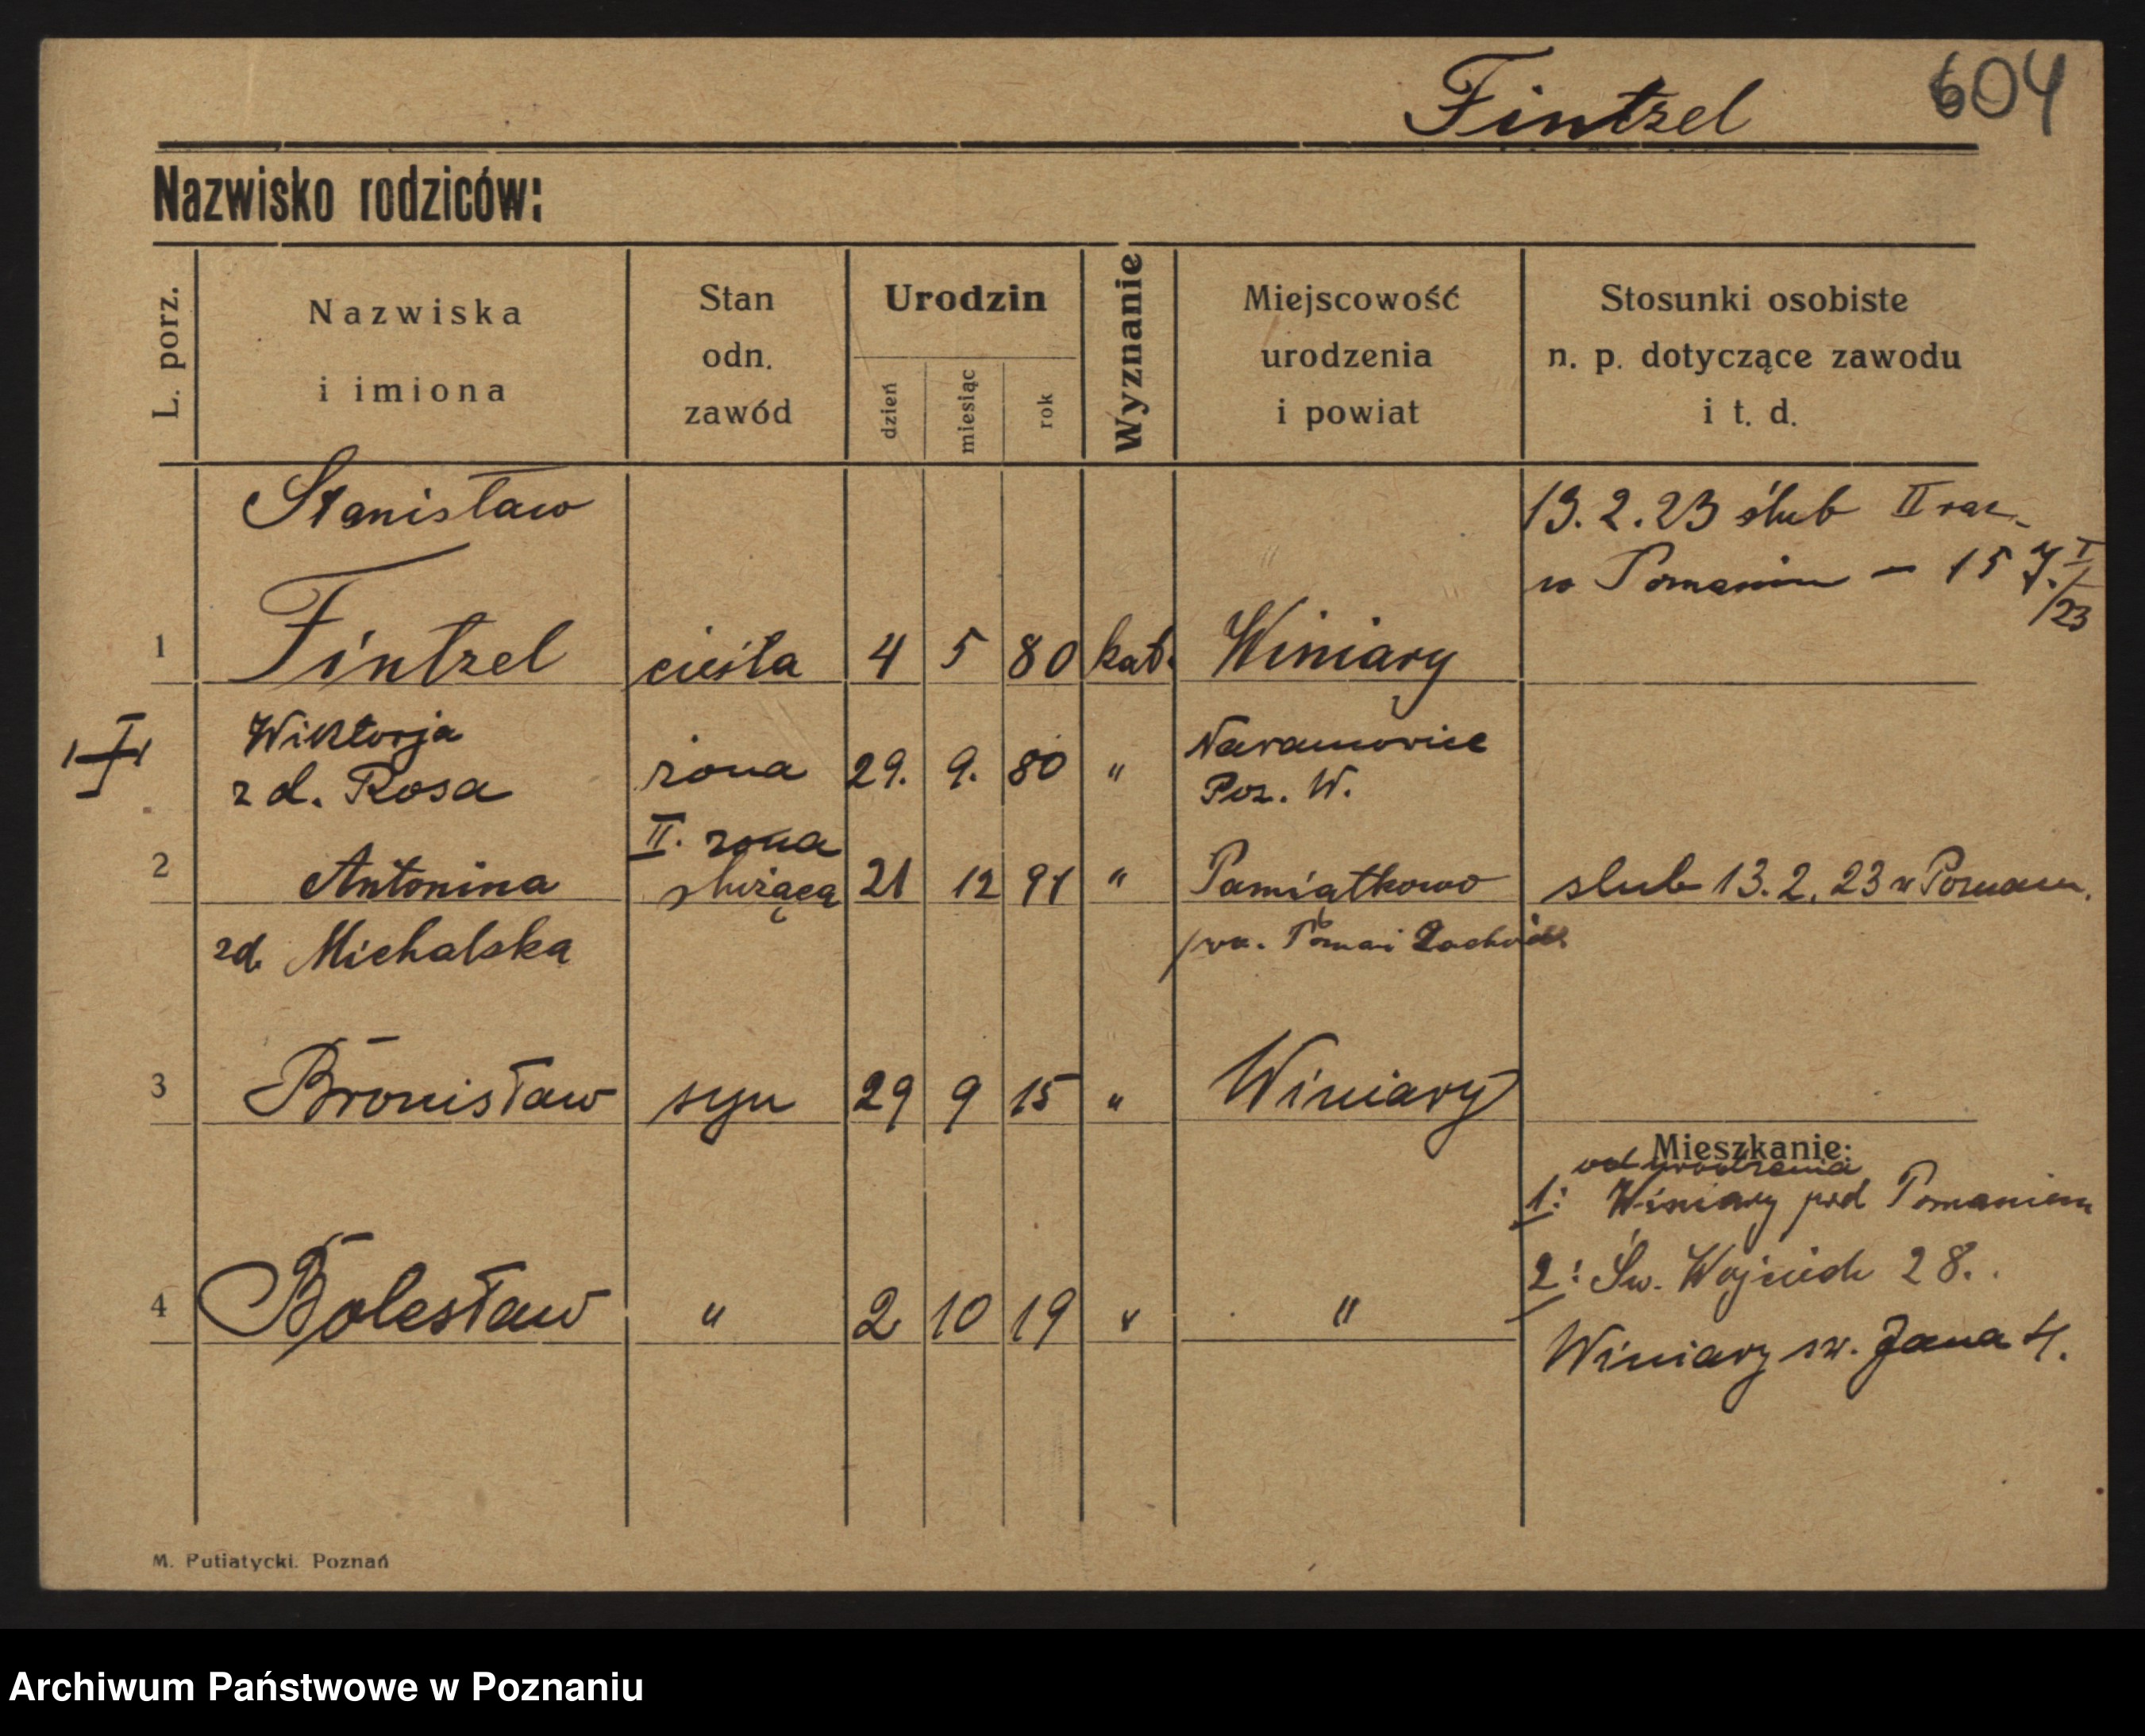 Fintzel 604
Nazwisko rodziców:
L. porz.
Nazwiska
i imiona
Stan
odn.
zawód
Urodzin
dzień
miesiąc
rok
Wyznanie
Miejscowość
urodzenia
i powiat
Stosunki osobiste
n. p. dotyczące zawodu
i t. d.
Stanisław 13.2.23 ślub II raz
w Poznaniu — 15
1 Fintzel cieśla 4 5 80 kat. Winiary
Wiktorja Naramowice
z d. Rosa żona 29. 9. 80 " Poz. W.
II. żona
2 Antonina służąca 21 12 91 " Pamiątkowo slub 13.2.23 w Poznaniu.
zd. Michalska
3 Bronisław syn 29 9 15 " Winiary
Mieszkanie:
od urodzenia
1: Winiary pod Poznaniem
2: Św. Wojciech 28.
4 Bolesław " 2 10 19 " "
Winiary sw. Jana 4.
M. Putiatycki. Poznań
Archiwum Państwowe w Poznaniu